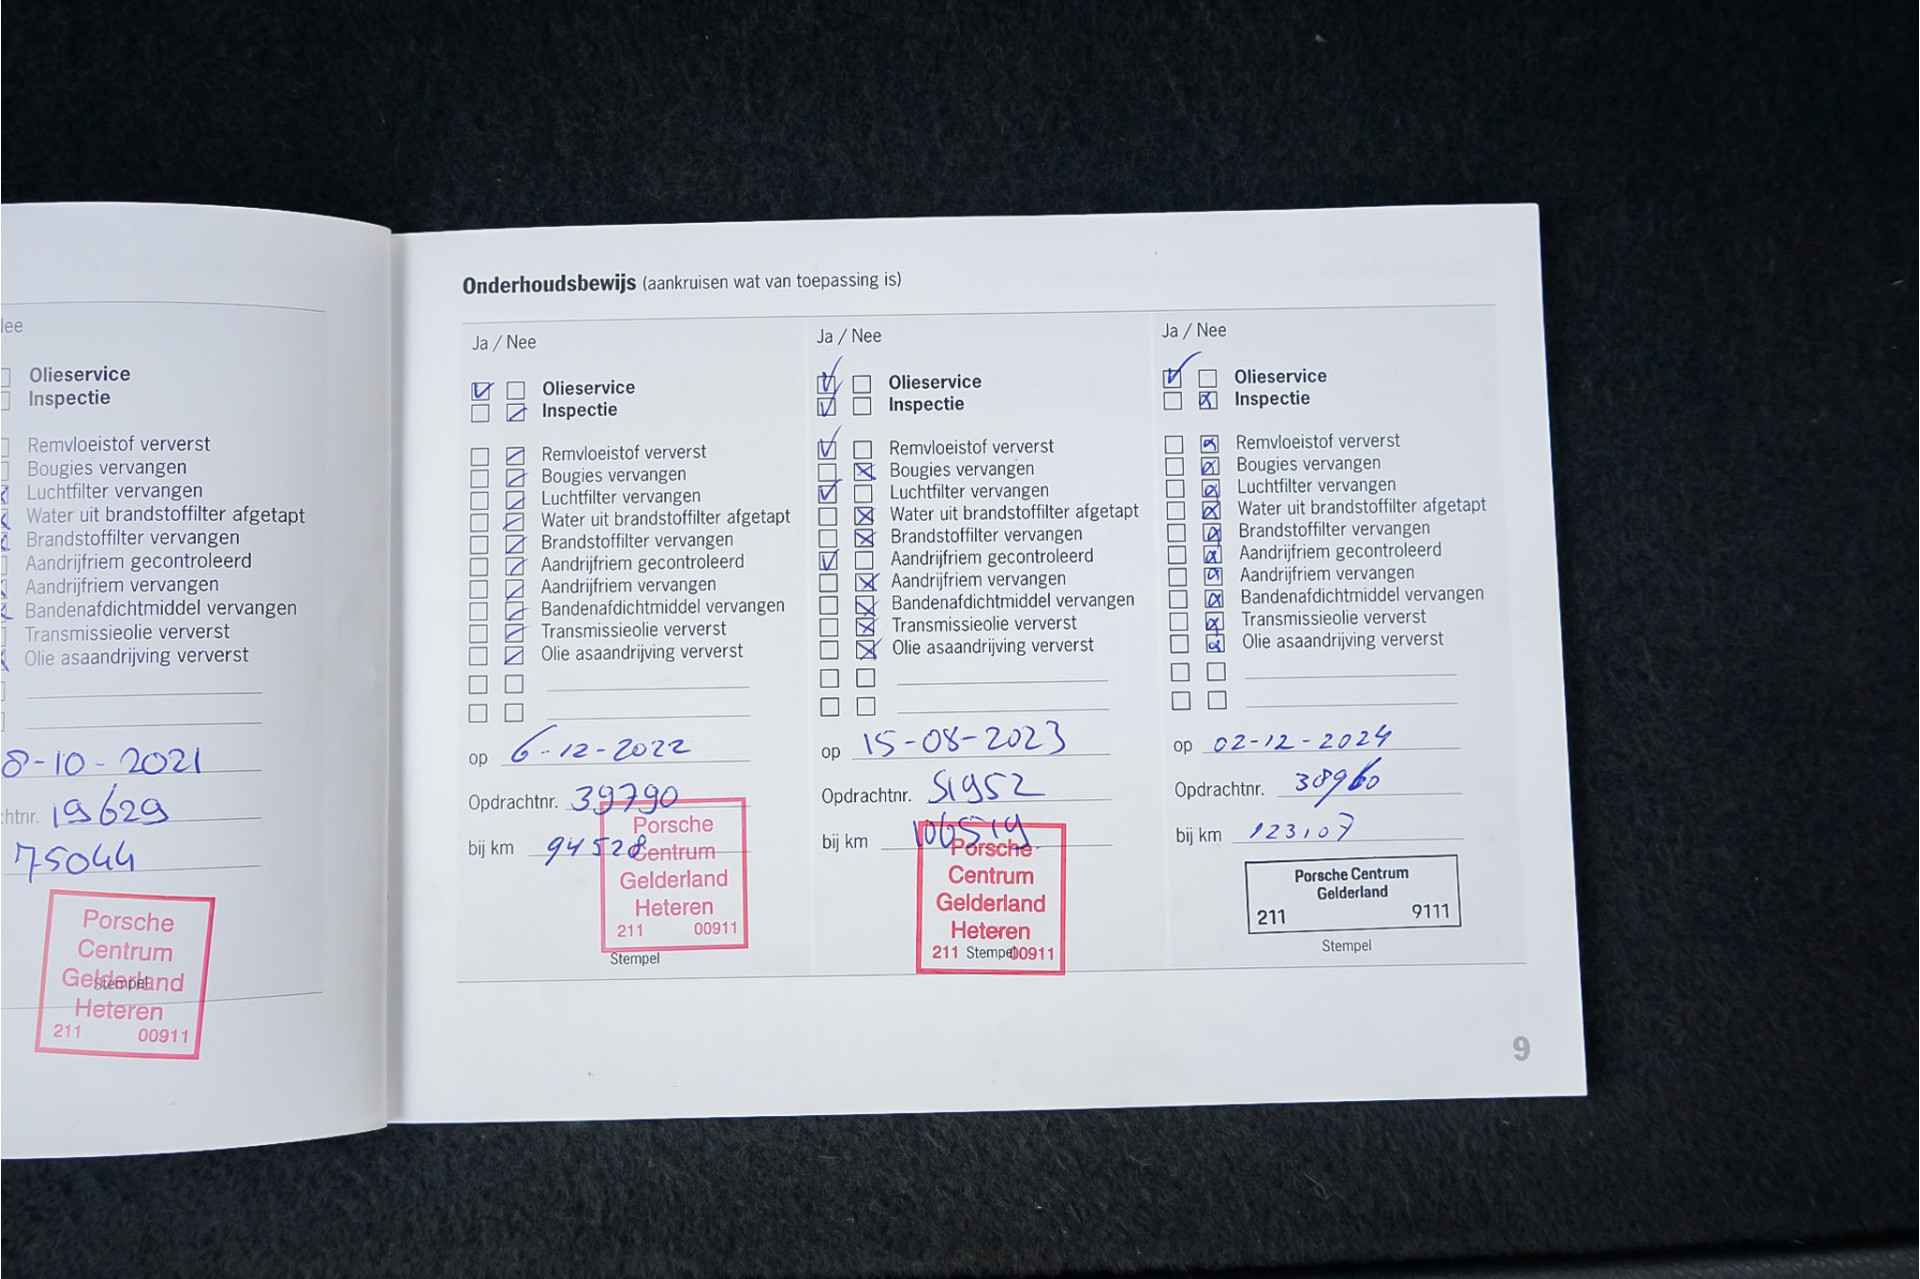 lee
Olieservice
Inspectie
Remvloeistof ververst
Bougies vervangen
Luchtfilter vervangen
Water uit brandstoffilter afgetapt
Brandstoffilter vervangen
Aandrijfriem gecontroleerd
Aandrijfriem vervangen
Bandenafdichtmiddel vervangen
Transmissieolie ververst
Olie asaandrijving ververst
8-10-2021
htnr. 19629
75044
Porsche
Centrum
Gelderland
Stempel
Heteren
211 00911
Onderhoudsbewijs (aankruisen wat van toepassing is)
Ja / Nee
Olieservice
Inspectie
Remvloeistof ververst
Bougies vervangen
Luchtfilter vervangen
Water uit brandstoffilter afgetapt
Brandstoffilter vervangen
Aandrijfriem gecontroleerd
Aandrijfriem vervangen
Bandenafdichtmiddel vervangen
Transmissieolie ververst
Olie asaandrijving ververst
op 6-12-2022
Opdrachtnr. 39790
bij km 94528
Porsche
Centrum
Gelderland
Heteren
211 00911
Stempel
Ja / Nee
Olieservice
Inspectie
Remvloeistof ververst
Bougies vervangen
Luchtfilter vervangen
Water uit brandstoffilter afgetapt
Brandstoffilter vervangen
Aandrijfriem gecontroleerd
Aandrijfriem vervangen
Bandenafdichtmiddel vervangen
Transmissieolie ververst
Olie asaandrijving ververst
op 15-08-2023
Opdrachtnr. 51952
bij km 106519
Porsche
Centrum
Gelderland
Heteren
211 Stempel 00911
Ja / Nee
Olieservice
Inspectie
Remvloeistof ververst
Bougies vervangen
Luchtfilter vervangen
Water uit brandstoffilter afgetapt
Brandstoffilter vervangen
Aandrijfriem gecontroleerd
Aandrijfriem vervangen
Bandenafdichtmiddel vervangen
Transmissieolie ververst
Olie asaandrijving ververst
op 02-12-2024
Opdrachtnr. 38960
bij km 123107
Porsche Centrum
Gelderland
211 9111
Stempel
9